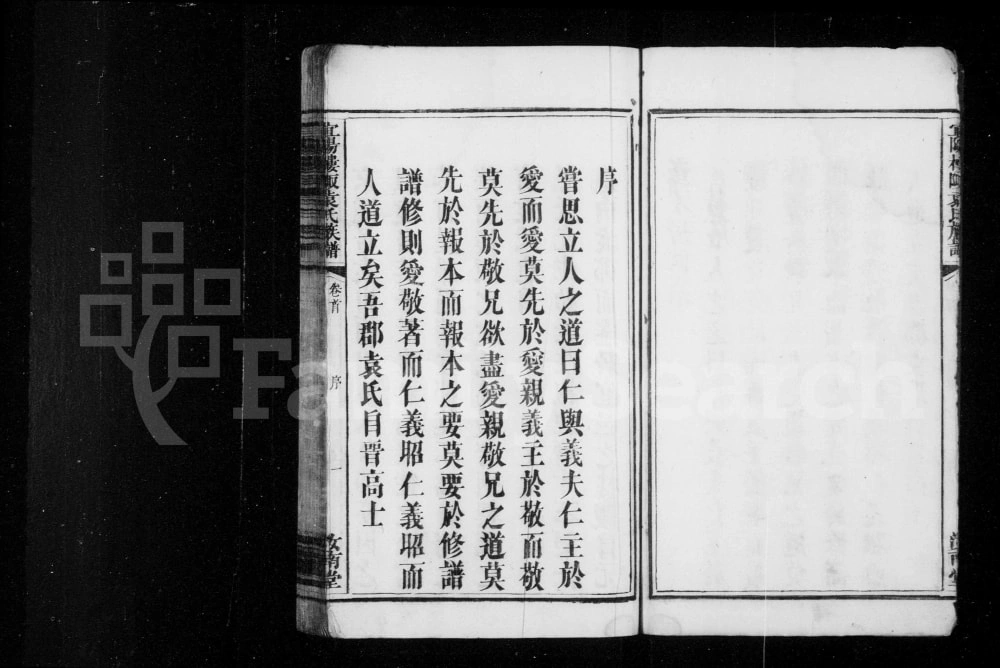 序
嘗思立人之道曰仁與義夫仁主於
愛而愛莫先於愛親義主於敬而敬
莫先於敬兄欲盡愛親敬兄之道莫
先於報本而報本之要莫要於修譜
譜修則愛敬著而仁義昭仁義昭而
人道立矣吾郡袁氏自晉高士
袁氏族譜
卷首
序
一
汝南堂